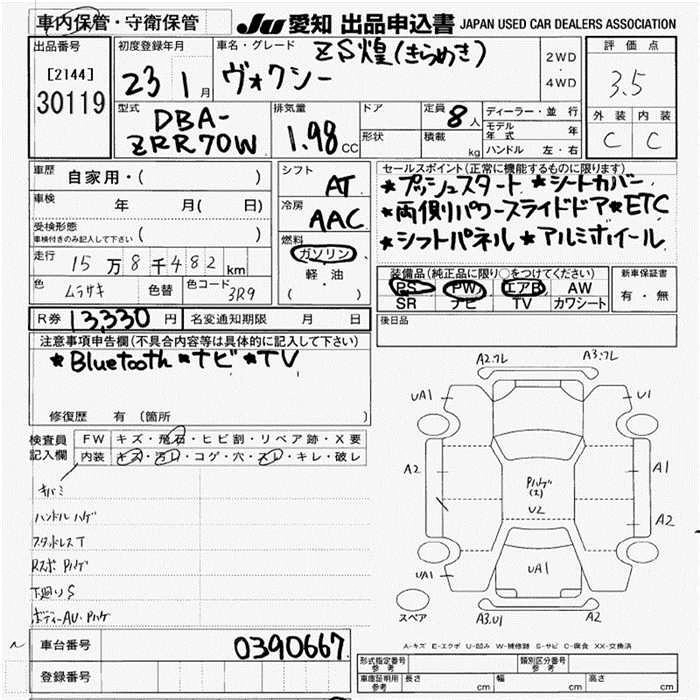 車内保管・守衛保管
JU 愛知 出品申込書 JAPAN USED CAR DEALERS ASSOCIATION
出品番号
[2144]
30119
初度登録年月
23 1月
車名・グレード
ZS煌(きらめき)
ヴォクシー
2WD
4WD
評価点
3.5
外装 内装
C C
型式
DBA-
ZRR70W
排気量
1.98 CC
ドア
形状
定員 8人
積載 kg
ディーラー・並行
モデル年式 年
ハンドル 左・右
車歴 自家用・( )
車検 年 月( 日)
受検形態
車検付きのみ記入して下さい ( )
走行 15万8千482km
色 ムラサキ 色替 色コード 3R9
シフト AT
冷房 AAC
燃料
ガソリン
軽・油
( )
セールスポイント(正常に機能するものに限ります)
★プッシュスタート ★シートカバー
★両側パワースライドドア★ETC
★シフトパネル ★アルミホイール
装備品(純正品に限り○をつけてください)
PS PW エアB AW
SR ナビ TV カワシート
新車保証書
有・無
後日品
R券 13,330円 名変通知期限 月 日
注意事項申告欄(不具合内容等は具体的に記入して下さい)
★Bluetooth★ナビ★TV
修復歴 有(箇所
検査員記入欄
FW キズ・飛石・ヒビ割・リペア跡・X要
内装 キズ・汚レ・コゲ・穴・スレ・キレ・破レ
キバミ
ハンドルハゲ
スタッドレスT
Rスポ Pハゲ
下廻りS
ボディーAU・Pハゲ
A2.フレ A3.フレ
UA1 U1
A2 A1
Pハゲ
(2)
U2
A2
UA1 UA1
スペア
A3.U1 A2
A-キズ E-エクボ U-凹み W-補修跡 S-サビ C-腐食 XX-交換済
車台番号 0390667
登録番号
形式指定番号 参考 類別区分番号 参考
車庫証明用参考 長さ cm 幅 cm 高さ cm